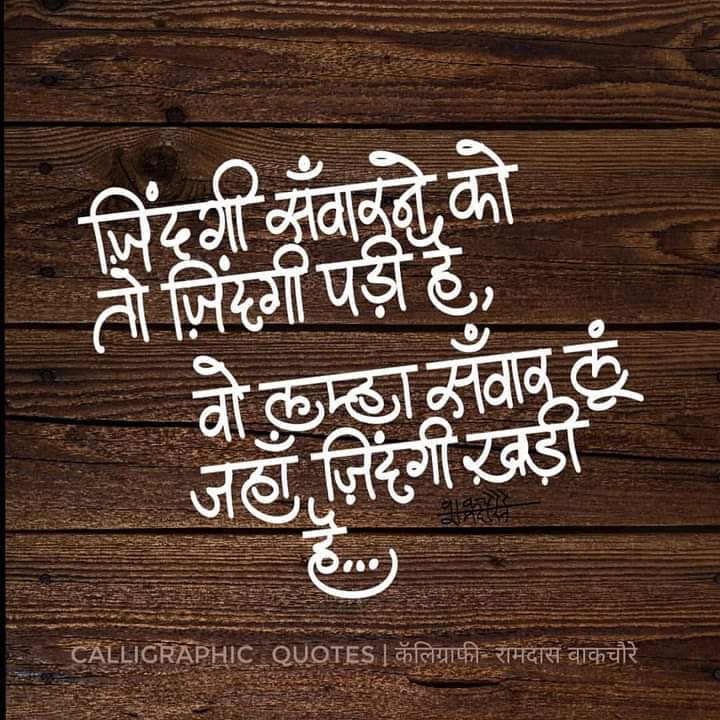 ज़िंदगी सँवारने को
तो ज़िंदगी पड़ी है,
वो लम्हा सँवार लूं
जहाँ ज़िंदगी खड़ी
है...
CALLIGRAPHIC QUOTES | कॅलिग्राफी- रामदास वाकचौरे